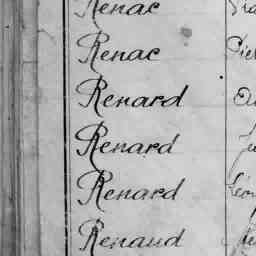 Renac
Renac
Renard
Renard
Renard
Renaud